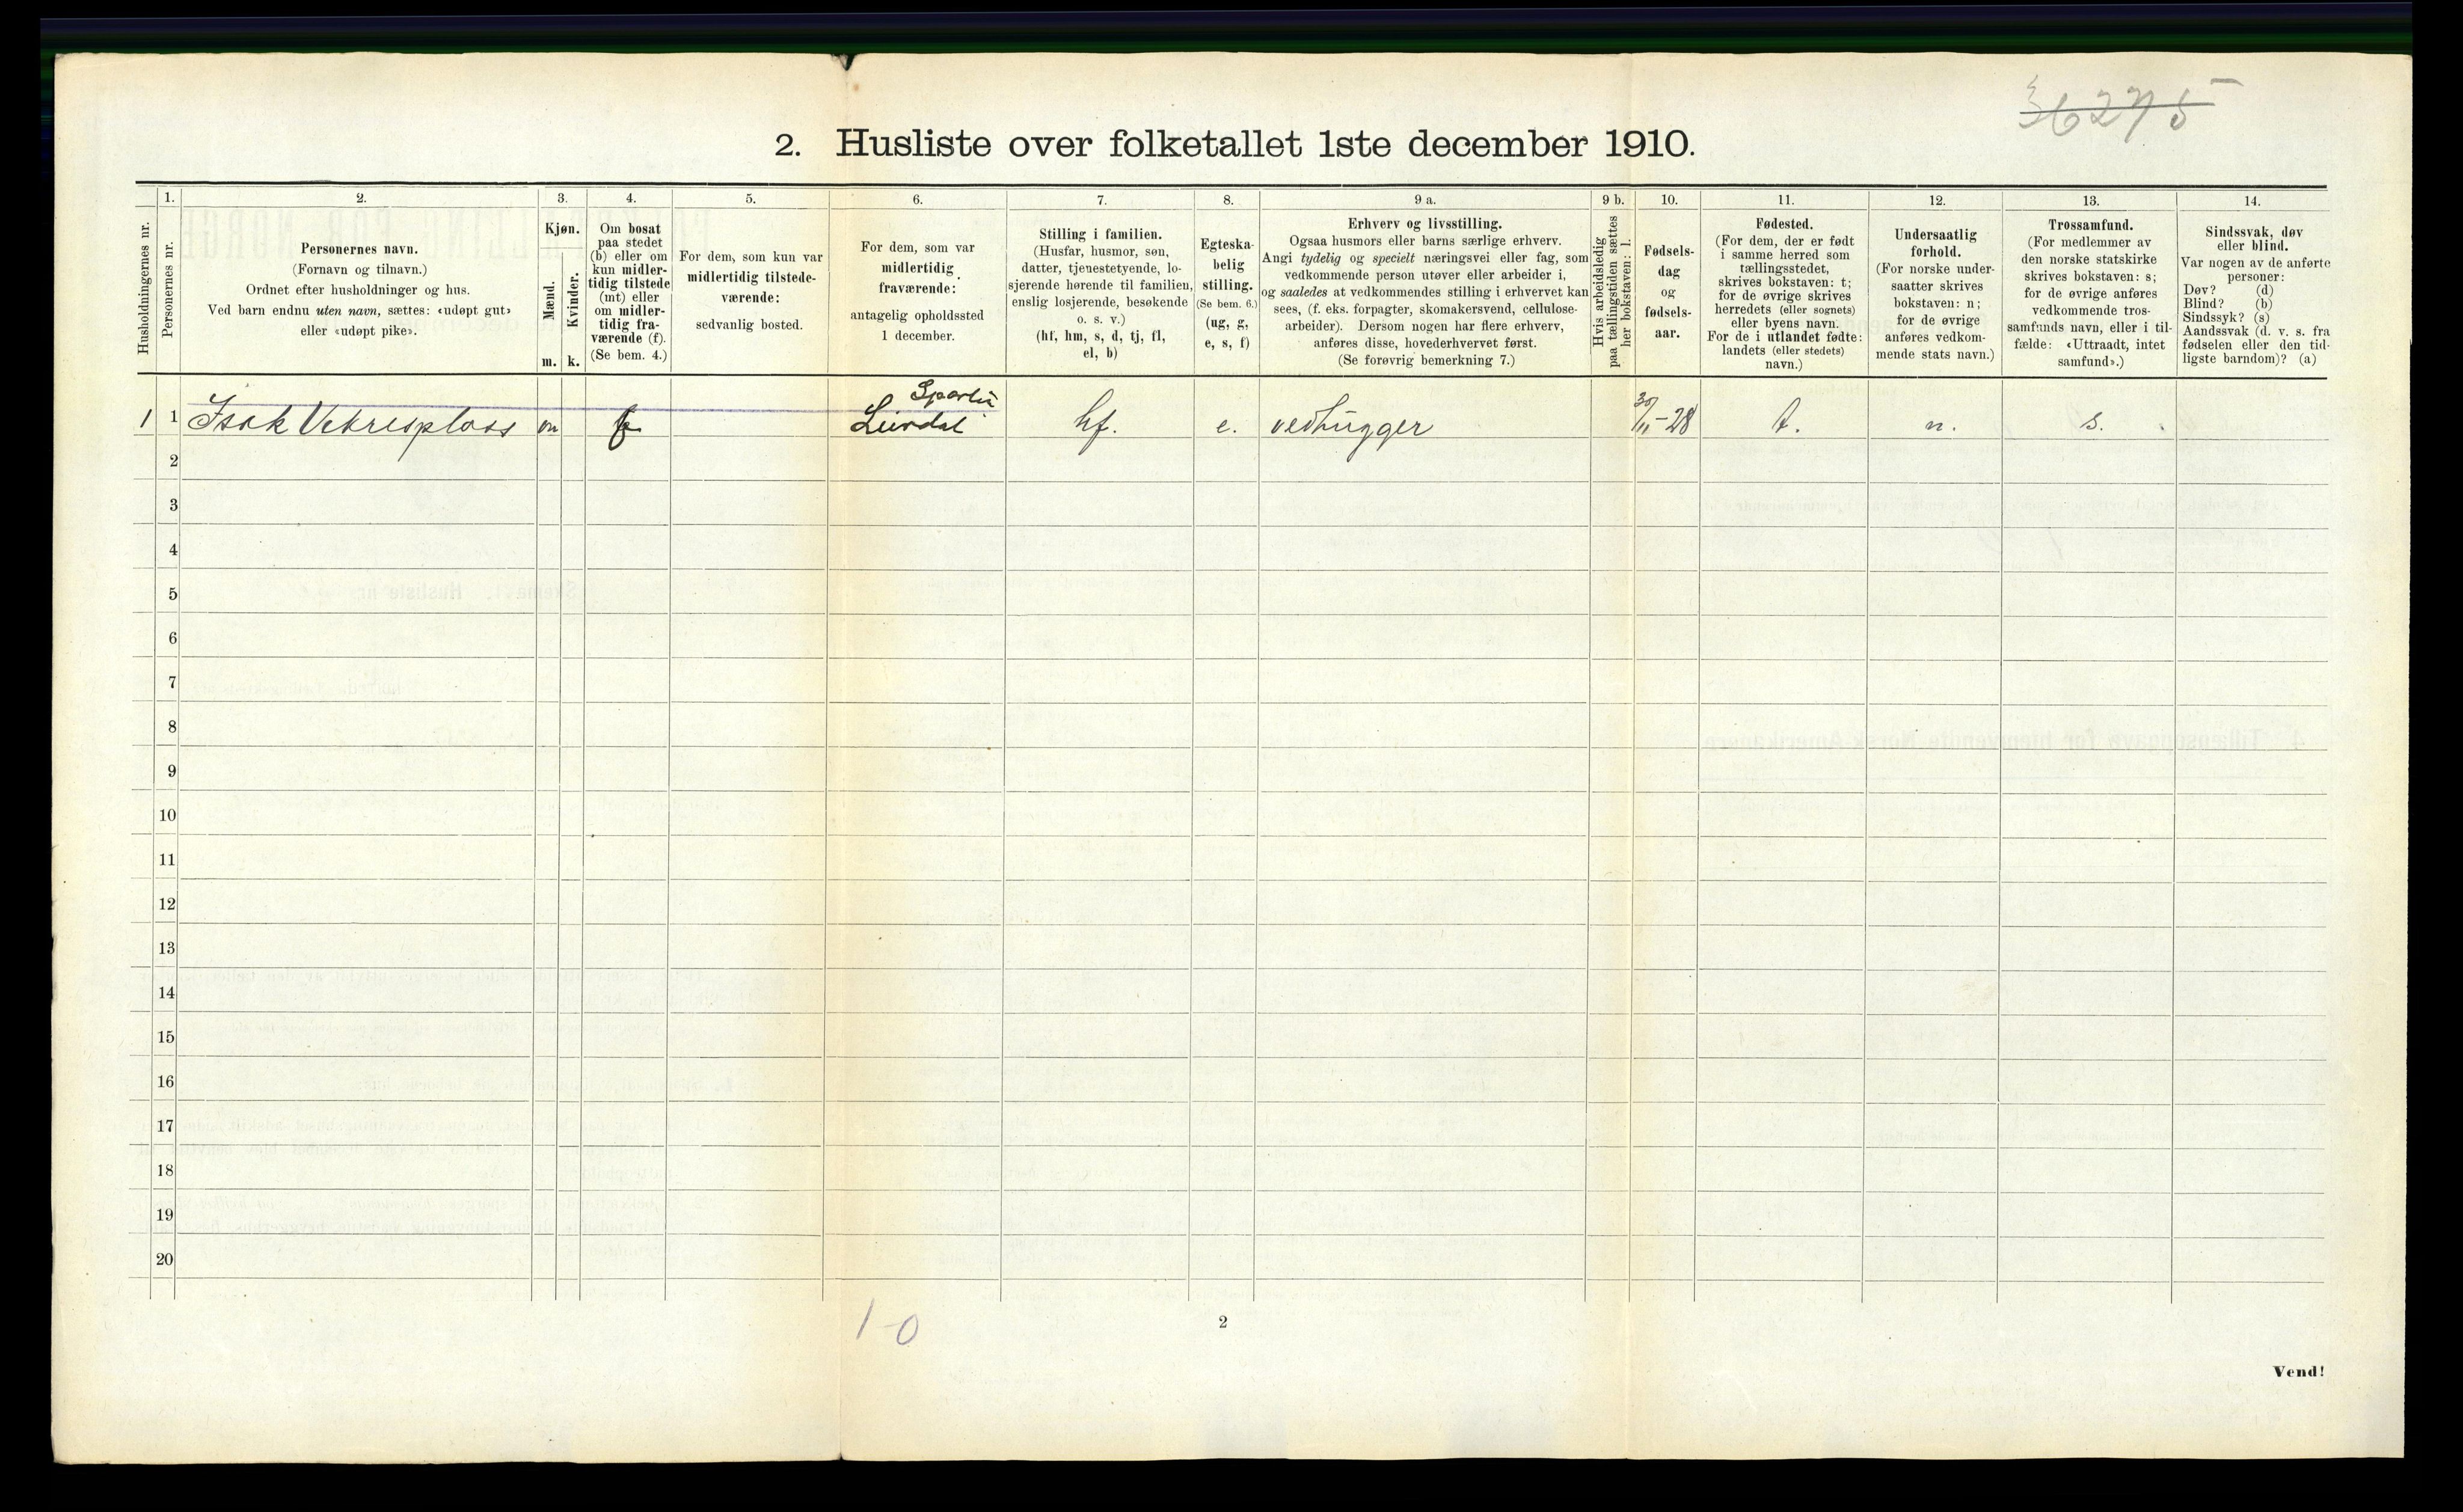 36275
2. Husliste over folketallet 1ste december 1910.
Husholdningernes nr.
1.
Personernes nr.
2.
Personernes navn.
(Fornavn og tilnavn.)
Ordnet efter husholdninger og hus.
Ved barn endnu uten navn, sættes: «udøpt gut»
eller «udøpt pike».
3.
Kjøn.
Mænd.
Kvinder.
m. k.
4.
Om bosat
paa stedet
(b) eller om
kun midler-
tidig tilstede
(mt) eller
om midler-
tidig fra-
værende (f).
(Se bem. 4.)
5.
For dem, som kun var
midlertidig tilstede-
værende:
sedvanlig bosted.
6.
For dem, som var
midlertidig
fraværende:
antagelig opholdssted
1 december.
7.
Stilling i familien.
(Husfar, husmor, søn,
datter, tjenestetyende, lo-
sjerende hørende til familien,
enslig losjerende, besøkende
o. s. v.)
(hf, hm, s, d, tj, fl,
el, b)
8.
Egteska-
belig
stilling.
(Se bem. 6.)
(ug, g,
e, s, f)
9 a.
Erhverv og livsstilling.
Ogsaa husmors eller barns særlige erhverv.
Angi tydelig og specielt næringsvei eller fag, som
vedkommende person utøver eller arbeider i,
og saaledes at vedkommendes stilling i erhvervet kan
sees, (f. eks. forpagter, skomakersvend, cellulose-
arbeider). Dersom nogen har flere erhverv,
anføres disse, hovederhvervet først.
(Se forøvrig bemerkning 7.)
9 b.
Hvis arbeidsledig
paa tællingstiden sættes
her bokstaven: l.
10.
Fødsels-
dag
og
fødsels-
aar.
11.
Fødested.
(For dem, der er født
i samme herred som
tællingsstedet,
skrives bokstaven: t;
for de øvrige skrives
herredets (eller sognets)
eller byens navn.
For de i utlandet fødte:
landets (eller stedets)
navn.)
12.
Undersaatlig
forhold.
(For norske under-
saatter skrives
bokstaven: n;
for de øvrige
anføres vedkom-
mende stats navn.)
13.
Trossamfund.
(For medlemmer av
den norske statskirke
skrives bokstaven: s;
for de øvrige anføres
vedkommende tros-
samfunds navn, eller i til-
fælde: «Uttraadt, intet
samfund».)
14.
Sindssvak, døv
eller blind.
Var nogen av de anførte
personer:
Døv? (d)
Blind? (b)
Sindssyk? (s)
Aandssvak (d. v. s. fra
fødselen eller den tid-
ligste barndom)? (a)
1 1 Isak Vekresplass m f Lirdal hf. e. vedhugger 30/11-28 t. n. s.
2
3
4
5
6
7
8
9
10
11
12
13
14
15
16
17
18
19
20
1-0
2
Vend!